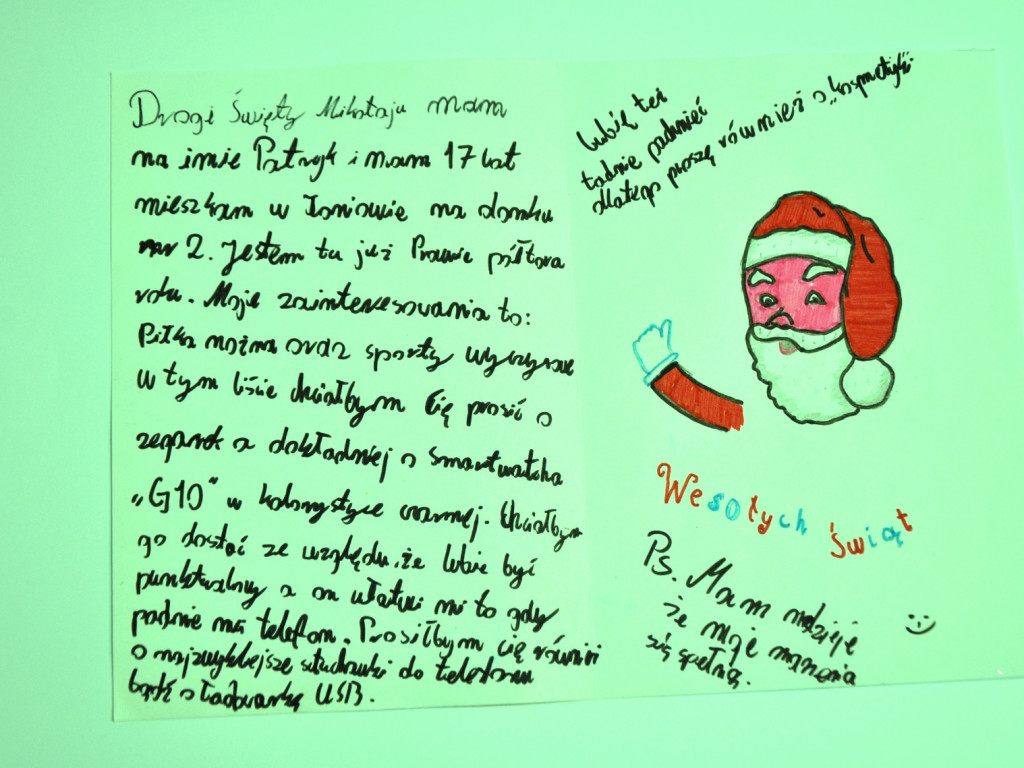 Drogi Święty Mikołaju mam
na imie Patryk i mam 17 lat
mieszkam w Łoniowie na domku
nr 2. Jestem tu już Prawie półtora
roku. Moje zainteresowania to:
Piłka nożna oraz sporty
w tym liście chciałbym Cię prosić o
zegarek a dokładniej o smartwatcha
„G10" w kolorystyce czarnej. Chciałbym
go dostać ze względu, że lubie być
punktualny a on ułatwi mi to gdy
padnie mi telefon. Prosiłbym cię również
o najzwyklejsze słuchawki do telefonu
bądź o ładowarkę USB.
lubię też
ładnie pachnieć
dlatego proszę również o „kosmetyki
Wesołych Świąt
Ps. Mam nadzieje
że moje marzenia
się spełnią.